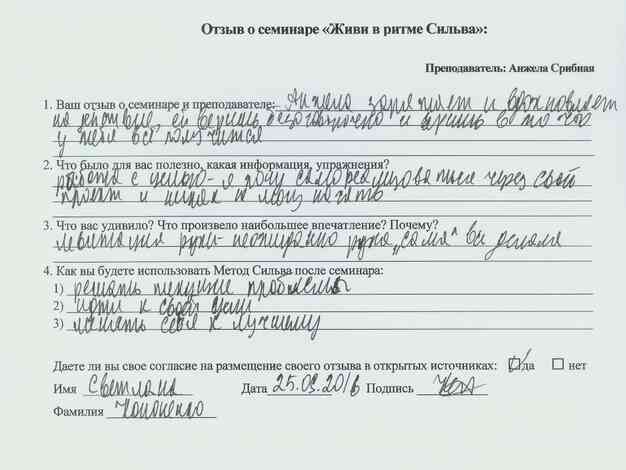 Отзыв о семинаре «Живи в ритме Сильва»:
Преподаватель: Анжела Срибная
1. Ваш отзыв о семинаре и преподавателе: Анжела заряжает и вдохновляет
на действие, ей веришь безоговорочно и веришь в то что
у тебя всё получится
2. Что было для вас полезно, какая информация, упражнения?
работа с целью - я хочу самореализоваться через свой
проект и
3. Что вас удивило? Что произвело наибольшее впечатление? Почему?
левитация руки - неожиданно рука "сама" всё делала
4. Как вы будете использовать Метод Сильва после семинара:
1) решать текущие проблемы
2) идти к своей цели
3) менять себя к лучшему
Даете ли вы свое согласие на размещение своего отзыва в открытых источниках: да нет
Имя Светлана Дата 25.09.2016 Подпись
Фамилия Кононенко